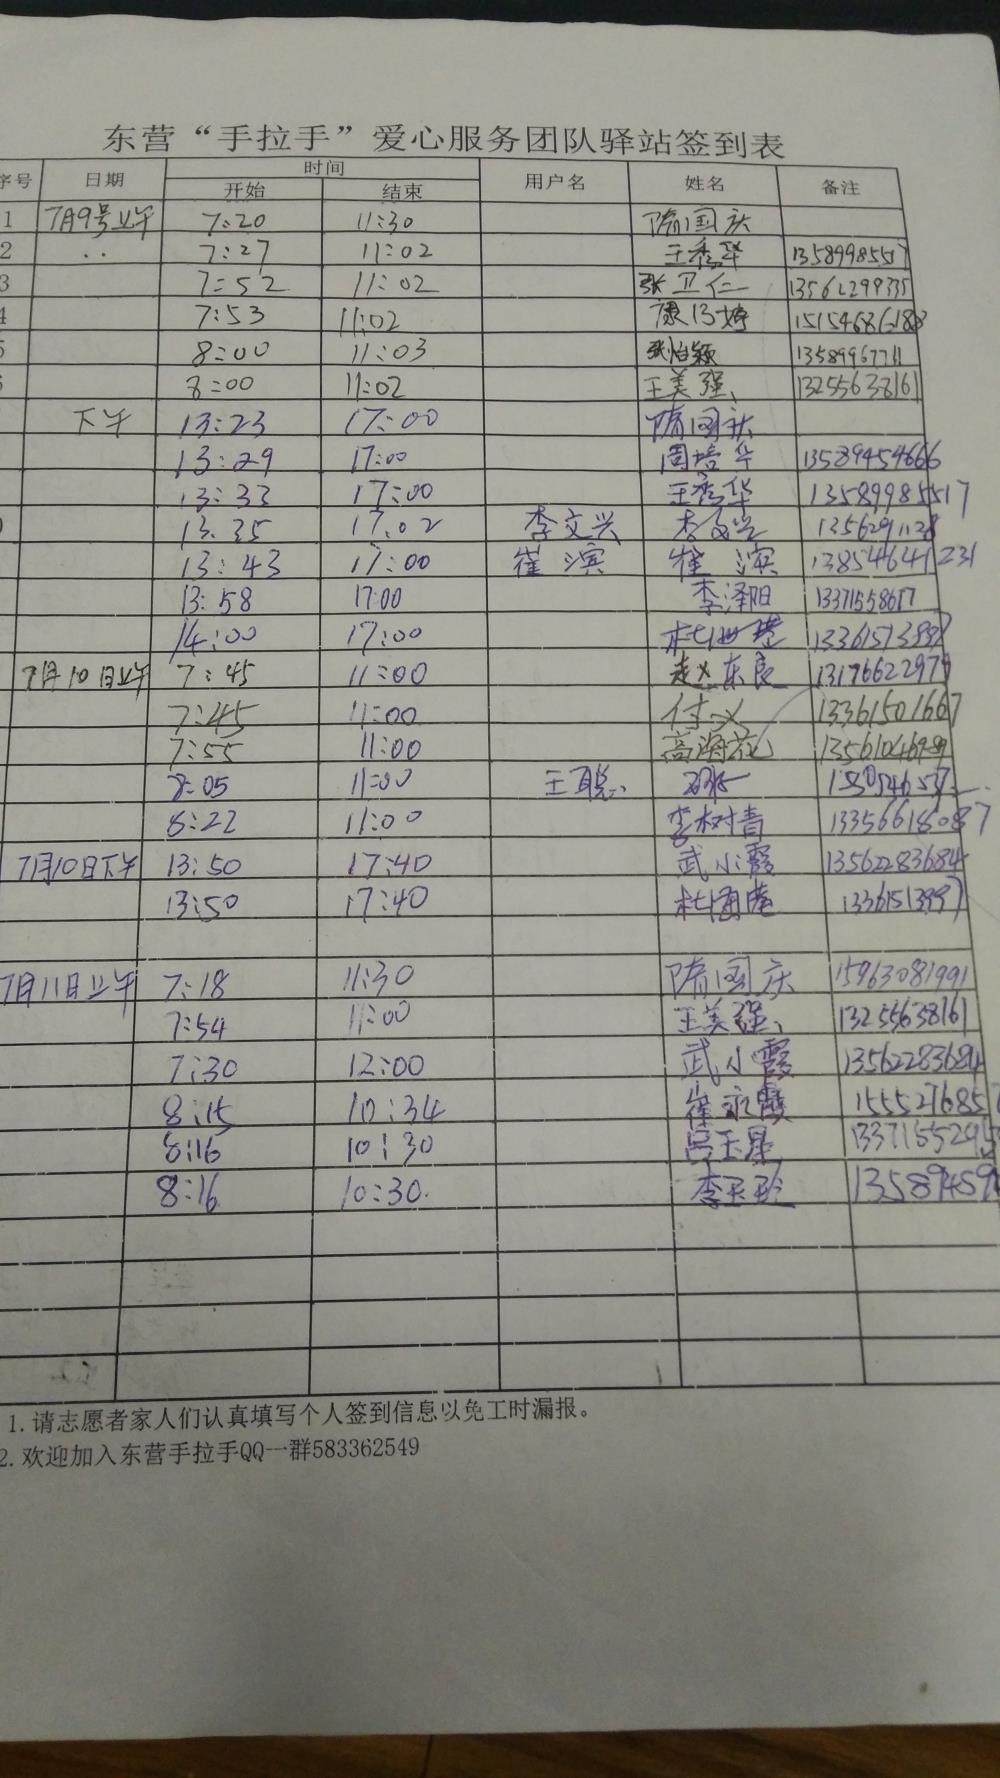 东营“手拉手”爱心服务团队驿站签到表
序号 日期 时间 用户名 姓名 备注
开始 结束
1 7月9号上午 7:20 11:30 隋国庆
2 .. 7:27 11:02 王秀华 13589985517
3 7:52 11:02 张卫仁 13561299335
4 7:53 11:02 15154686188
5 8:00 11:03 张怡颖 13589967711
8:00 11:02 王美强 13255638161
下午 13:23 17:00 隋国庆
13:29 17:00 周培华 13589454666
13:33 17:00 王秀华 13589985517
13:35 17:02 李文兴 李文兴 1356291128
13:43 17:00 崔滨 崔滨 13854641231
13:58 17:00 李泽阳 13371558617
14:00 17:00
7月10日上午 7:45 11:00 赵东良 13176622979
7:45 11:00 付义 13361501667
7:55 11:00 高海花
8:05 11:00 王聪
8:22 11:00 李树青 13356618087
7月10日下午 13:50 17:40 武小霞 13562283684
13:50 17:40
7月11日上午 7:18 11:30 隋国庆 15963081991
7:54 11:00 王美强 13255638161
7:30 12:00 武小霞 13562283684
8:15 10:34 崔永霞 1555276857
8:16 10:30 吕玉星 1337155295
8:16 10:30. 李玉珍 13589459
1.请志愿者家人们认真填写个人签到信息以免工时漏报。
2.欢迎加入东营手拉手QQ一群583362549